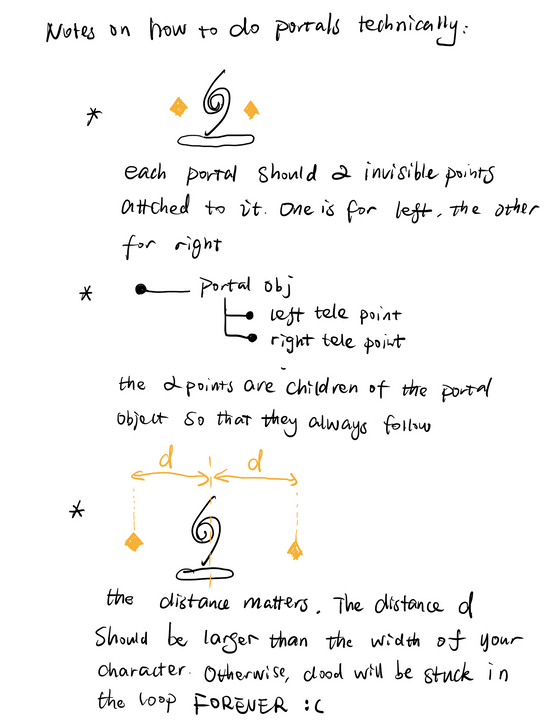 Notes on how to do portals technically:
*
each portal should 2 invisible points
attched to it. One is for left, the other
for right
*
portal obj
left tele point
right tele point
the 2 points are children of the portal
object so that they always follow
d d
*
the distance matters. The distance d
should be larger than the width of your
character. Otherwise, dood will be stuck in
the loop FOREVER :C